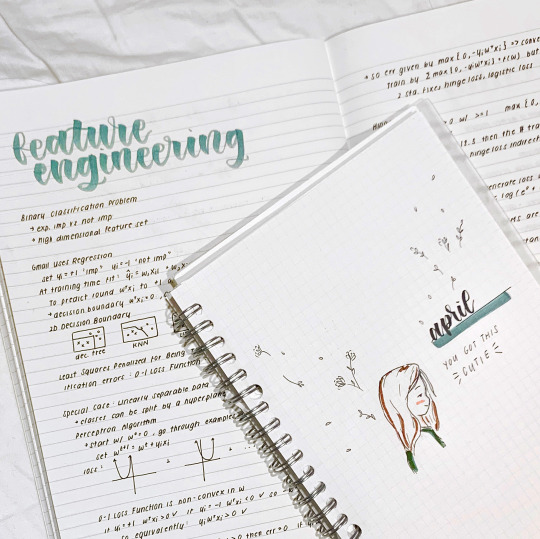 feature
engineering
Binary Classification Problem
→ exp. imp vs not imp
* high dimensional feature set
Gmail Uses Regression
set yi = +1 "imp" yi = -1 "not imp"
At training time fit: ŷi = w₀xi1 + w₂x
To predict round wᵀxi to
→ decision boundary wᵀxi = 0
2D Decision Boundary
dec tree
KNN
Least Squares Penalized for Being
ification errors: 0-1 Loss Function
Special Case: Linearly Separable Data
* classes can be split by a hyperplane
Perceptron Algorithm
* start w/ w⁰ = 0, go through examples
set wᵗ⁺¹ = wᵗ + yixi
loss:
0-1 Loss Function is non-convex in w
if yi = +1 wᵀxi > 0 v if yi = -1 wᵀxi < 0 v so
equivalently: yiwᵀxi > 0 v
> 0 then err = 0 if yi
* so err given by max {0, -yiwᵀxi} => conve
train by Σ max {0, -yiwᵀxi} + r(w) but
2 sta. fixes, hinge loss, logistic loss
max {0,
is then the # trai
hinge loss indirect
generate loss w
log(e⁰ +
are
april
YOU GOT THIS
CUTIE